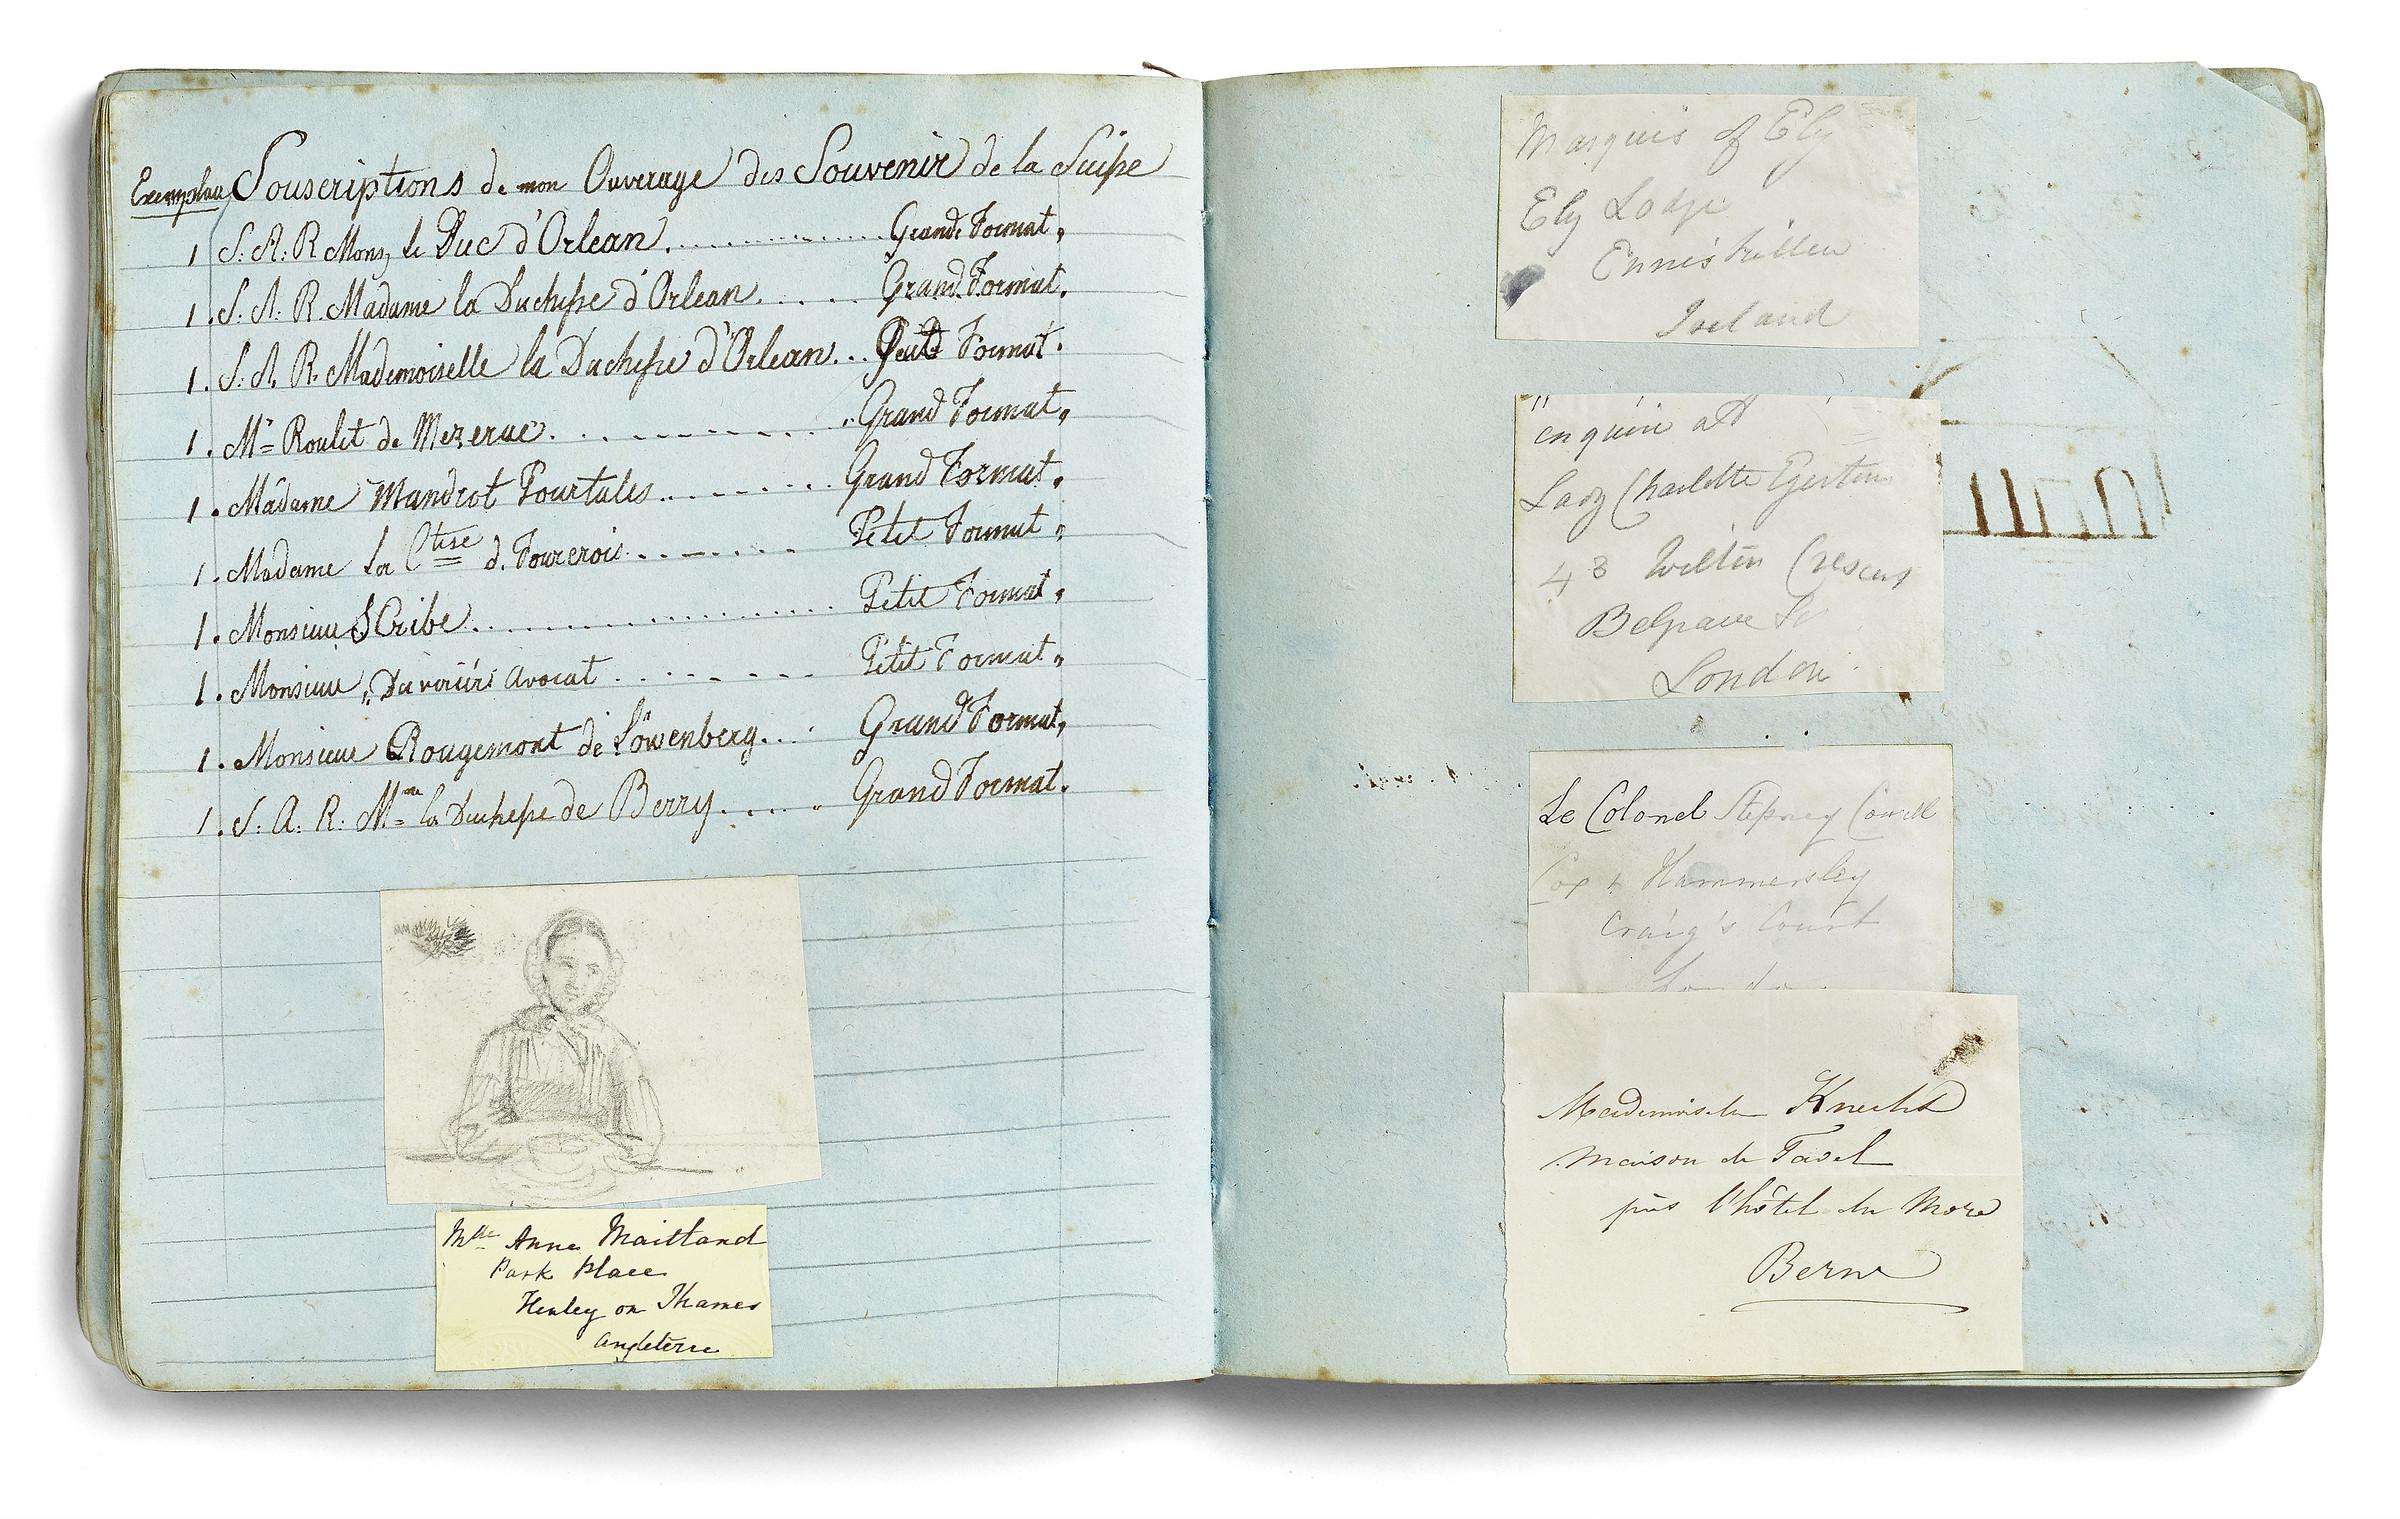 Exemplau Souscriptions de mon Ouvrage des Souvenir de la Suisse
1 S. A. R Mons, le Duc d'Orlean. Grande Format,
1. S. A. R. Madame la Duchesse d'Orlean. Grand Format.
1. S. A. R. Mademoiselle la Duchesse d'Orlean. Petit Format.
1. Mr Roulet de Mezerac. Grand Format,
1. Madame Mandrot Pourtales. Grand Format,
1. Madame La Ctsse d. Fourcrois. Petit Format,
1. Monsieur Scribe. Petit Format,
1. Monsieur, avocat. Petit Format,
1. Monsieur Rougemont de Löwenberg. Grand Format,
1. S. A. R. Mme la Duchesse de Berry. Grand Format.
Mlle Anna Maitland
Park Place
Henley on Thames
Angleterre
Marquis of Ely
Ely Lodge
Enniskillen
Ireland
enquire at
Lady Charlotte Egerton
43 Wilton Crescent
Belgrave Sq
London
Le Colonel Stepney Cowell
Cox & Hammersley
Craig's Court
London
Mademoiselle Knecht
Maison de Tavel
près l'hôtel du More
Berne